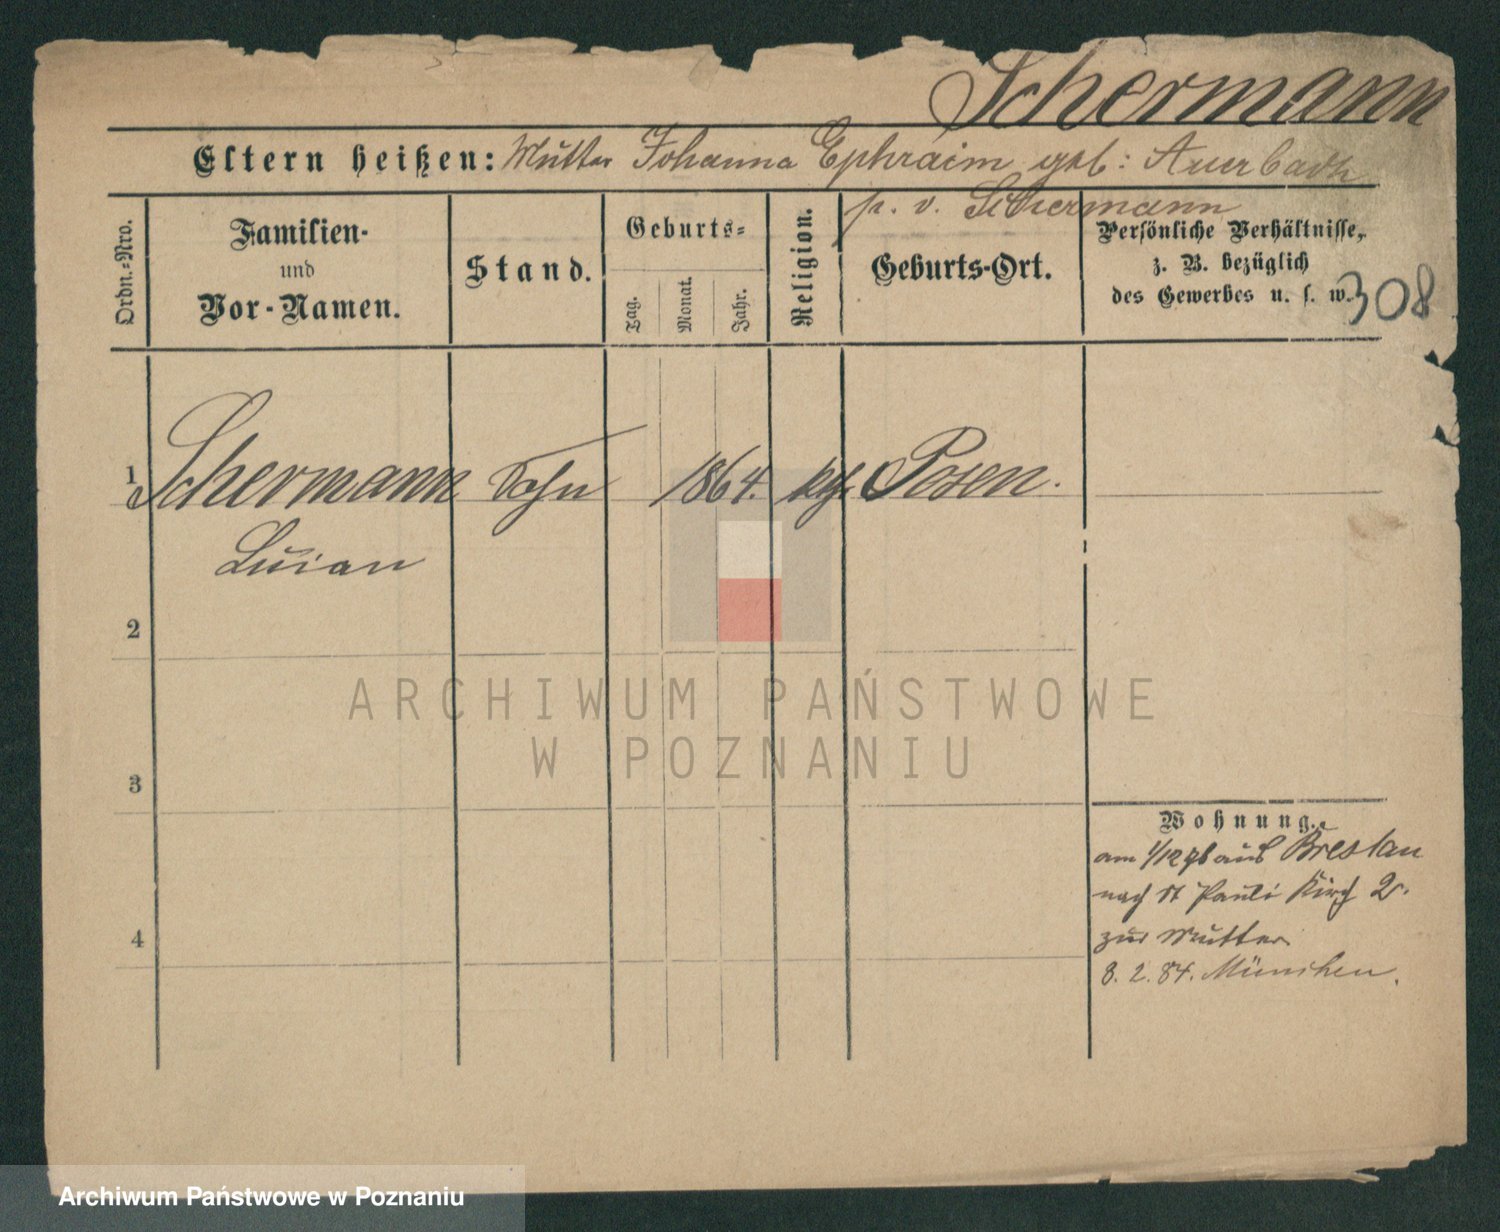 Schermann
Eltern heißen: Mutter Johanna Ephraim geb: Auerbach
v. Schermann
Ordn.-Nro.
Familien-
und
Vor-Namen.
Stand.
Geburts-
Tag.
Monat.
Jahr.
Religion.
Geburts-Ort.
Persönliche Verhältnisse,
z. B. bezüglich
des Gewerbes u. s. w.
308
1 Schermann Sohn 1864. Posen.
2
3
4
Wohnung.
am 1/12 aus Breslau
nach St Pauli Kirch 2.
zur Mutter
8. 2. 84. München.
ARCHIWUM PAŃSTWOWE
W POZNANIU
Archiwum Państwowe w Poznaniu